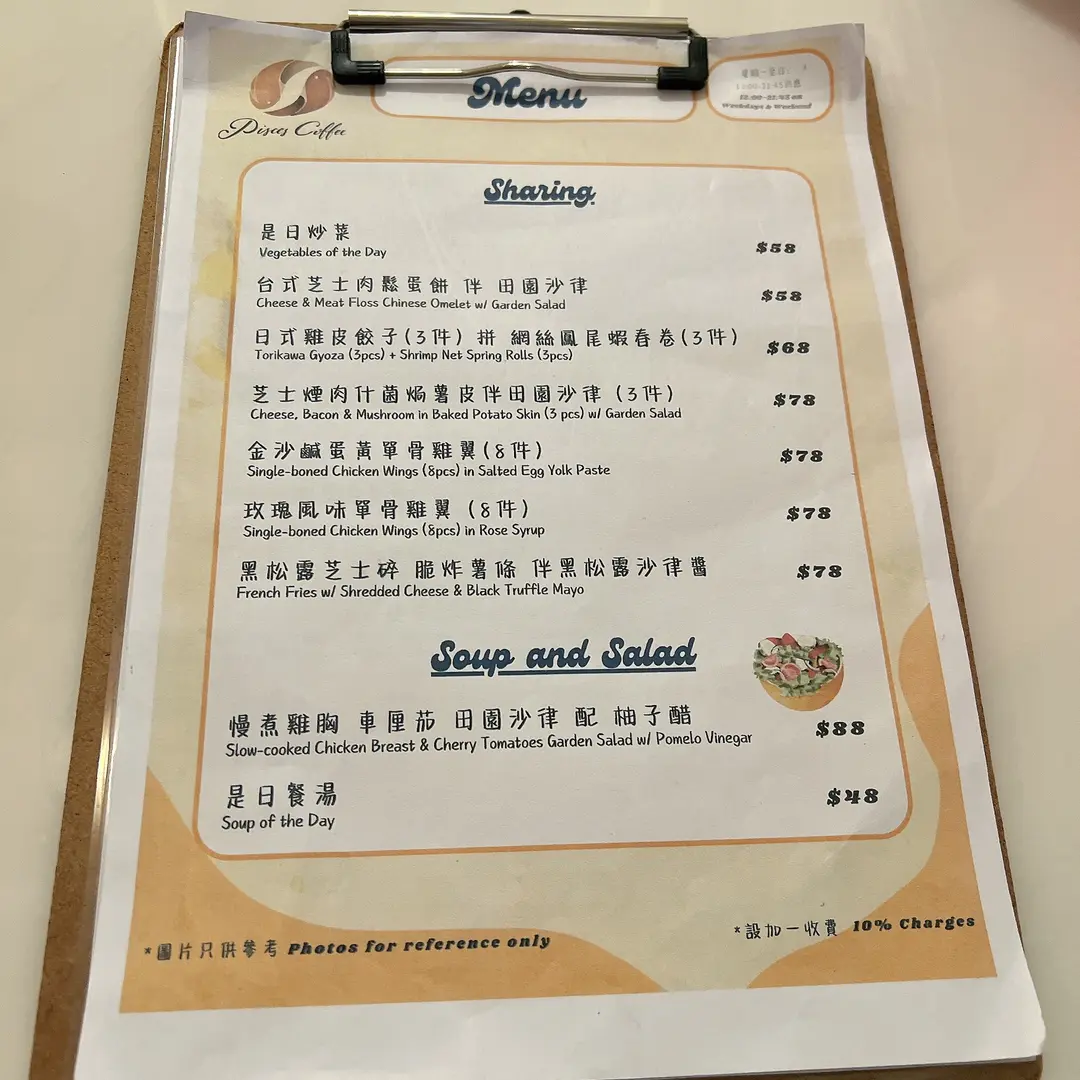 Pisces Coffee
Menu
12:00-21:45 on
Weekdays & Weekend
Sharing
是日炒菜
Vegetables of the Day
$58
台式芝士肉鬆蛋餅 伴 田園沙律
Cheese & Meat Floss Chinese Omelet w/ Garden Salad
$58
日式雞皮餃子(3件) 拼 網絲鳳尾蝦春卷(3件)
Torikawa Gyoza (3pcs) + Shrimp Net Spring Rolls (3pcs)
$68
芝士煙肉什菌焗薯皮伴田園沙律 (3件)
Cheese, Bacon & Mushroom in Baked Potato Skin (3 pcs) w/ Garden Salad
$78
金沙鹹蛋黃單骨雞翼(8件)
Single-boned Chicken Wings (8pcs) in Salted Egg Yolk Paste
$78
玫瑰風味單骨雞翼 (8件)
Single-boned Chicken Wings (8pcs) in Rose Syrup
$78
黑松露芝士碎 脆炸薯條 伴黑松露沙律醬
French Fries w/ Shredded Cheese & Black Truffle Mayo
$78
Soup and Salad
慢煮雞胸 車厘茄 田園沙律 配 柚子醋
Slow-cooked Chicken Breast & Cherry Tomatoes Garden Salad w/ Pomelo Vinegar
$88
是日餐湯
Soup of the Day
$48
*圖片只供參考 Photos for reference only
*設加一收費 10% Charges